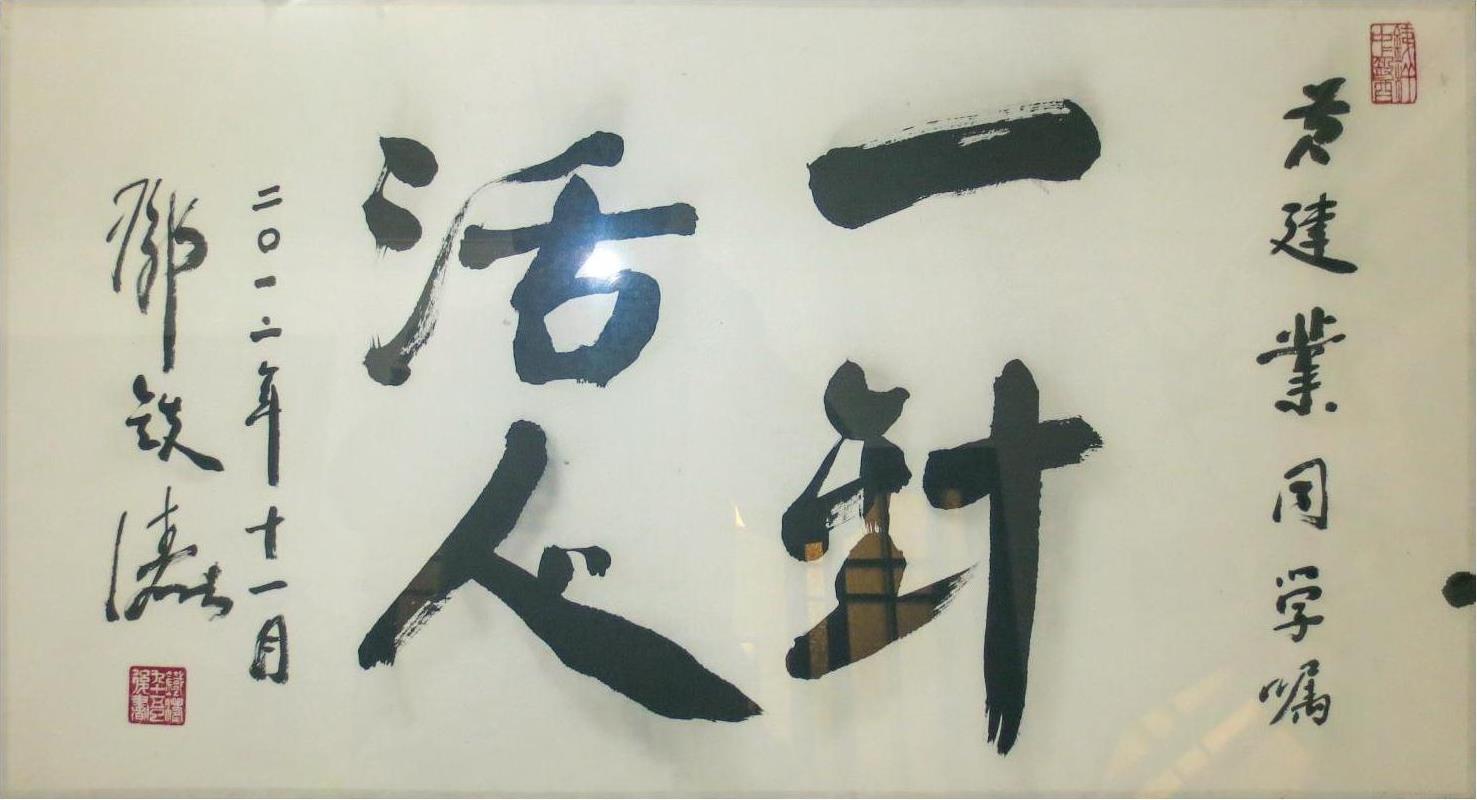 黄建業同学嘱
一針
活人
二〇一二年十一月
鄧鉄濤